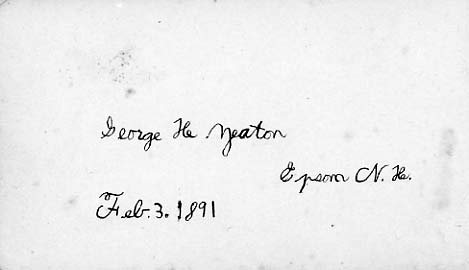 George H. Yeaton
Epsom N. H.
Feb. 3. 1891